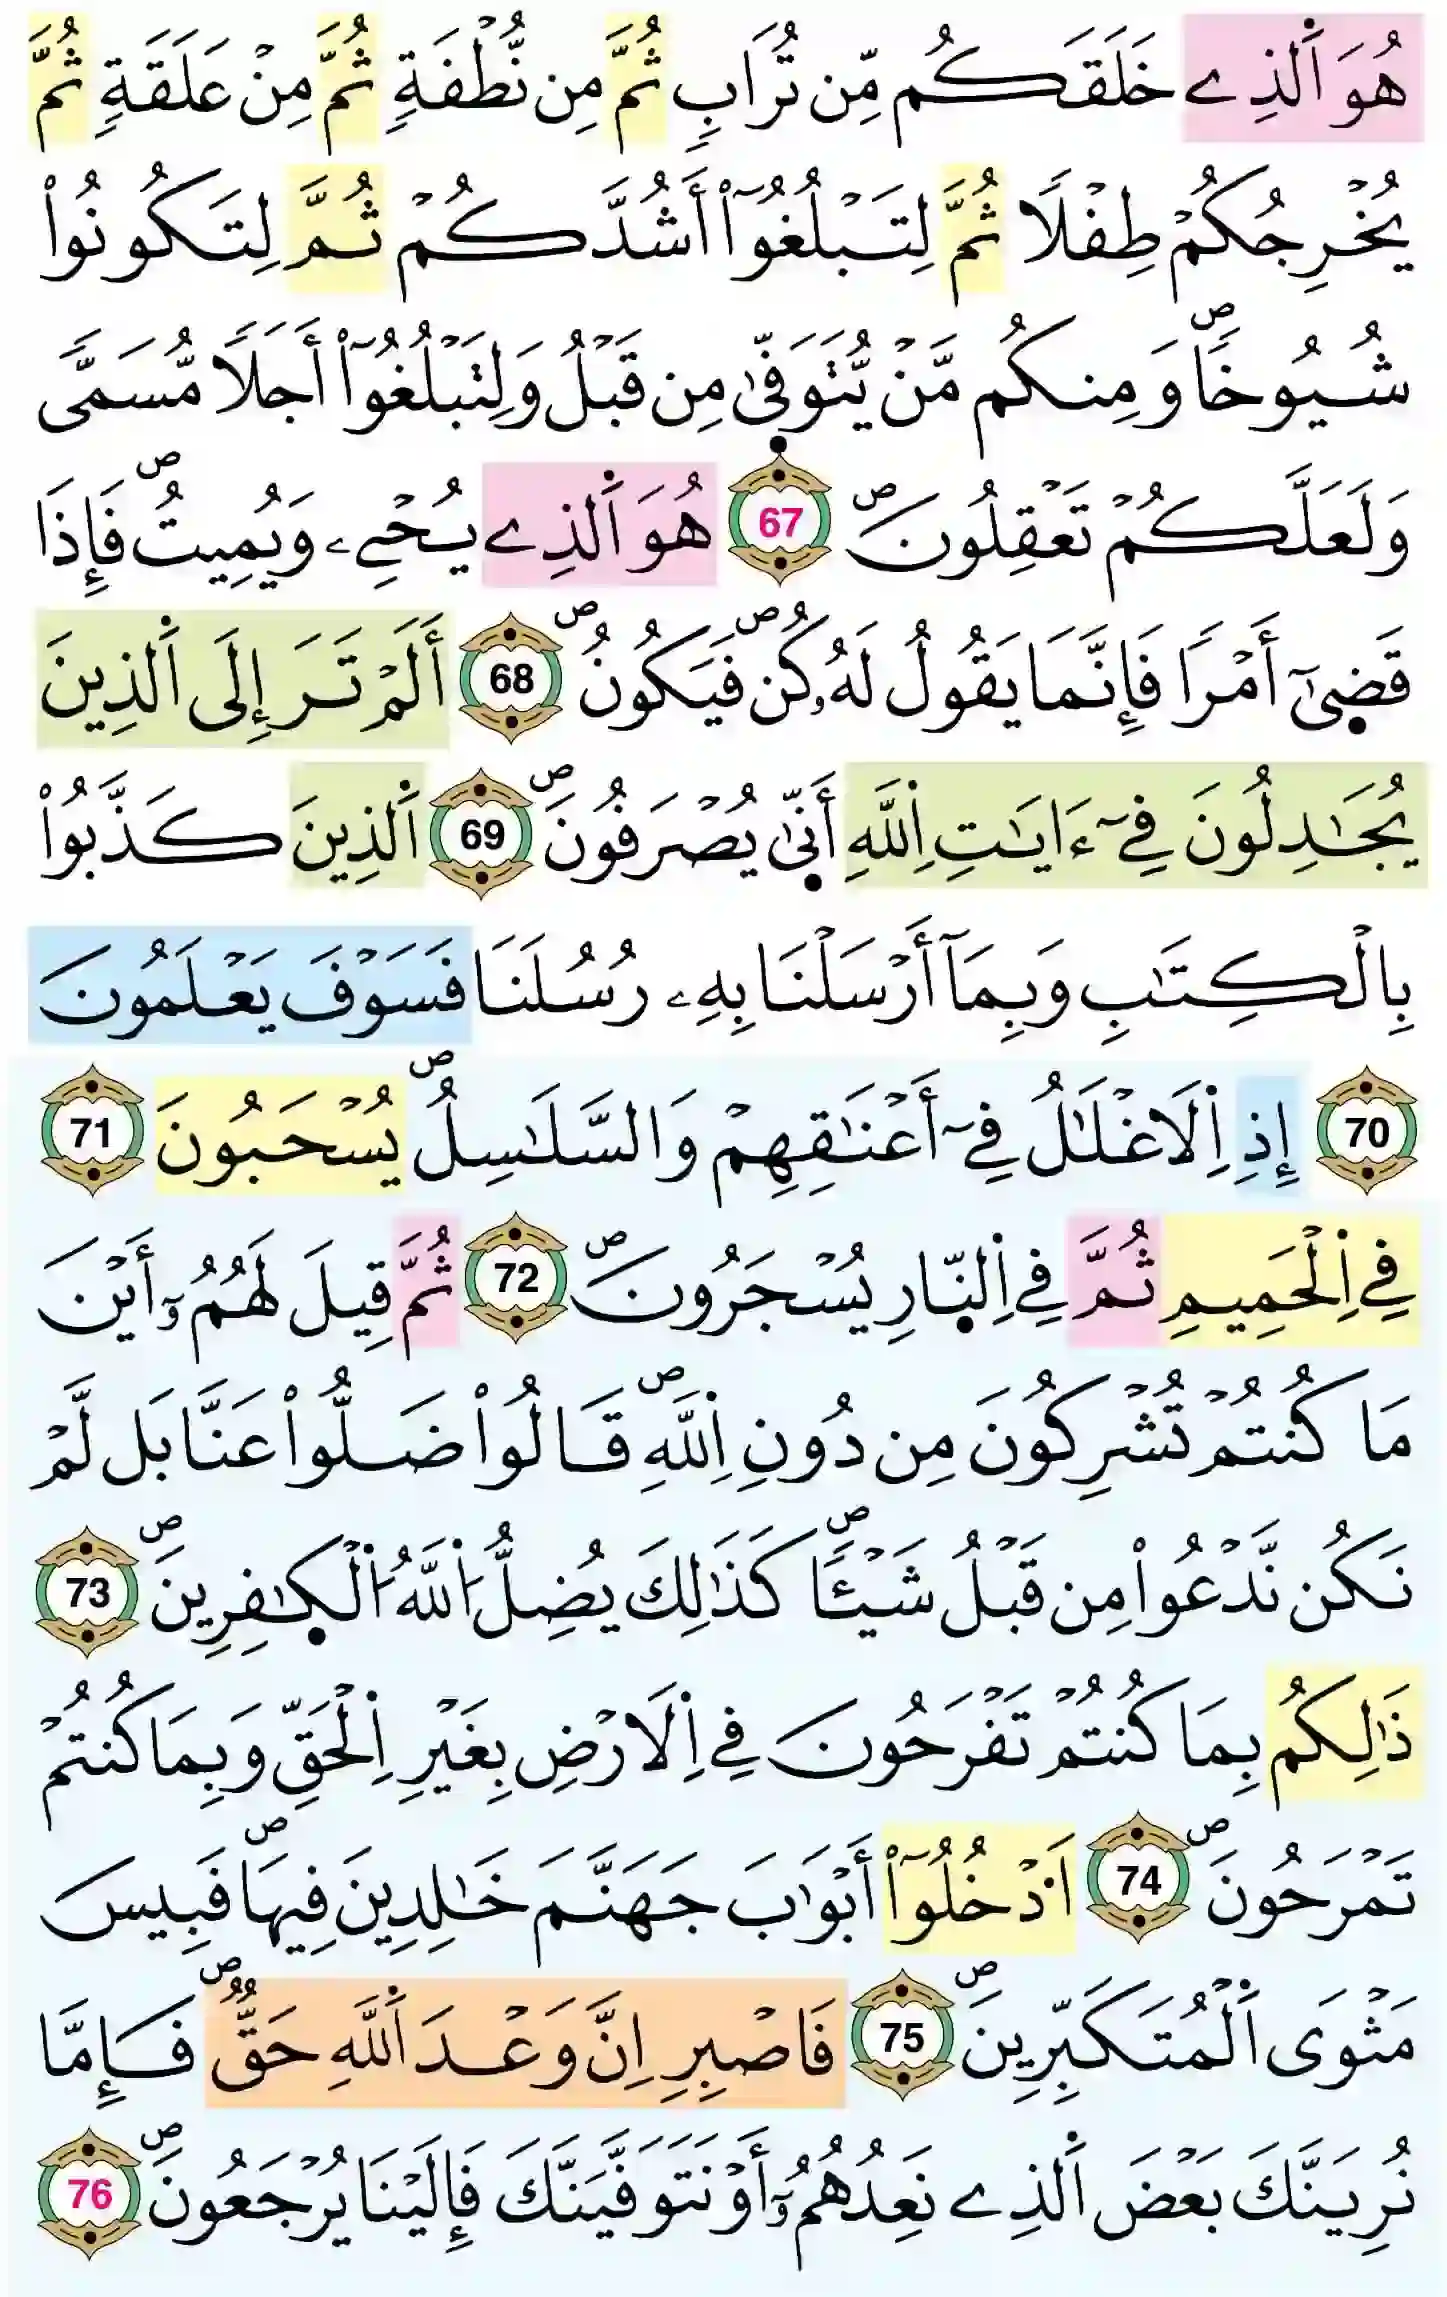 هُوَ اَ۬لذِے خَلَقَكُم مِّن تُرَابٖ ثُمَّ مِن نُّطْفَةٖ ثُمَّ مِنْ عَلَقَةٖ ثُمَّ
يُخْرِجُكُمْ طِفْلاٗ ثُمَّ لِتَبْلُغُوٓاْ أَشُدَّكُمْ ثُمَّ لِتَكُونُواْ
شُيُوخاٗۖ وَمِنكُم مَّنْ يُّتَوَفّ۪يٰ مِن قَبْلُ وَلِتَبْلُغُوٓاْ أَجَلاٗ مُّسَمّيٗ
وَلَعَلَّكُمْ تَعْقِلُونَۖ 67 هُوَ اَ۬لذِے يُحْيِۦ وَيُمِيتُۖ فَإِذَا
قَض۪يٰٓ أَمْراٗ فَإِنَّمَا يَقُولُ لَهُۥ كُنۖ فَيَكُونُۖ 68 أَلَمْ تَرَ إِلَي اَ۬لذِينَ
يُجَٰدِلُونَ فِےٓ ءَايَٰتِ اِ۬للَّهِ أَنّ۪يٰ يُصْرَفُونَۖ 69 اَ۬لذِينَ كَذَّبُواْ
بِالْكِتَٰبِ وَبِمَآ أَرْسَلْنَا بِهِۦ رُسُلَنَا فَسَوْفَ يَعْلَمُونَ
70 إِذِ اِ۬لَاغْلَٰلُ فِےٓ أَعْنَٰقِهِمْ وَالسَّلَٰسِلُۖ يُسْحَبُونَ 71
فِے اِ۬لْحَمِيمِ ثُمَّ فِے اِ۬لنّ۪ارِ يُسْجَرُونَۖ 72 ثُمَّ قِيلَ لَهُمُۥٓ أَيْنَ
مَا كُنتُمْ تُشْرِكُونَ مِن دُونِ اِ۬للَّهِۖ قَالُواْ ضَلُّواْ عَنَّا بَل لَّمْ
نَكُن نَّدْعُواْ مِن قَبْلُ شَيْـٔاٗۖ كَذَٰلِكَ يُضِلُّ اُ۬للَّهُ اُ۬لْكٰ۪فِرِينَۖ 73
ذَٰلِكُم بِمَا كُنتُمْ تَفْرَحُونَ فِے اِ۬لَارْضِ بِغَيْرِ اِ۬لْحَقِّ وَبِمَا كُنتُمْ
تَمْرَحُونَۖ 74 اَ۟دْخُلُوٓاْ أَبْوَٰبَ جَهَنَّمَ خَٰلِدِينَ فِيهَاۖ فَبِيسَ
مَثْوَي اَ۬لْمُتَكَبِّرِينَۖ 75 فَاصْبِرِ اِنَّ وَعْدَ اَ۬للَّهِ حَقّٞۖ فَإِمَّا
نُرِيَنَّكَ بَعْضَ اَ۬لذِے نَعِدُهُمُۥٓ أَوْ نَتَوَفَّيَنَّكَ فَإِلَيْنَا يُرْجَعُونَۖ 76